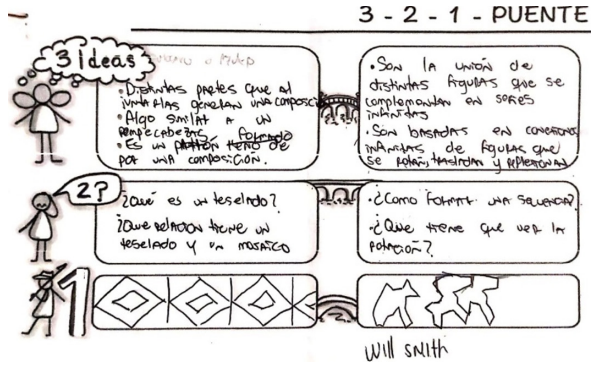 3 - 2 - 1 - PUENTE
3 Ideas
• Distintas partes que al
juntarlas generan una composición
• Algo similar a un
rompecabezas
• Es un patrón formado
por una composición.
• Son la unión de
distintas figuras que se
complementan en series
infinitas
• Son basadas en conexiones
infinitas, de figuras que
se rotan, trasladan y reflexionan
2?
¿Qué es un teselado?
¿Que relacion tiene un
teselado y un mosaico
• ¿Como formar una secuencia?
• ¿Que tiene que ver la
rotación?
1
Will Smith